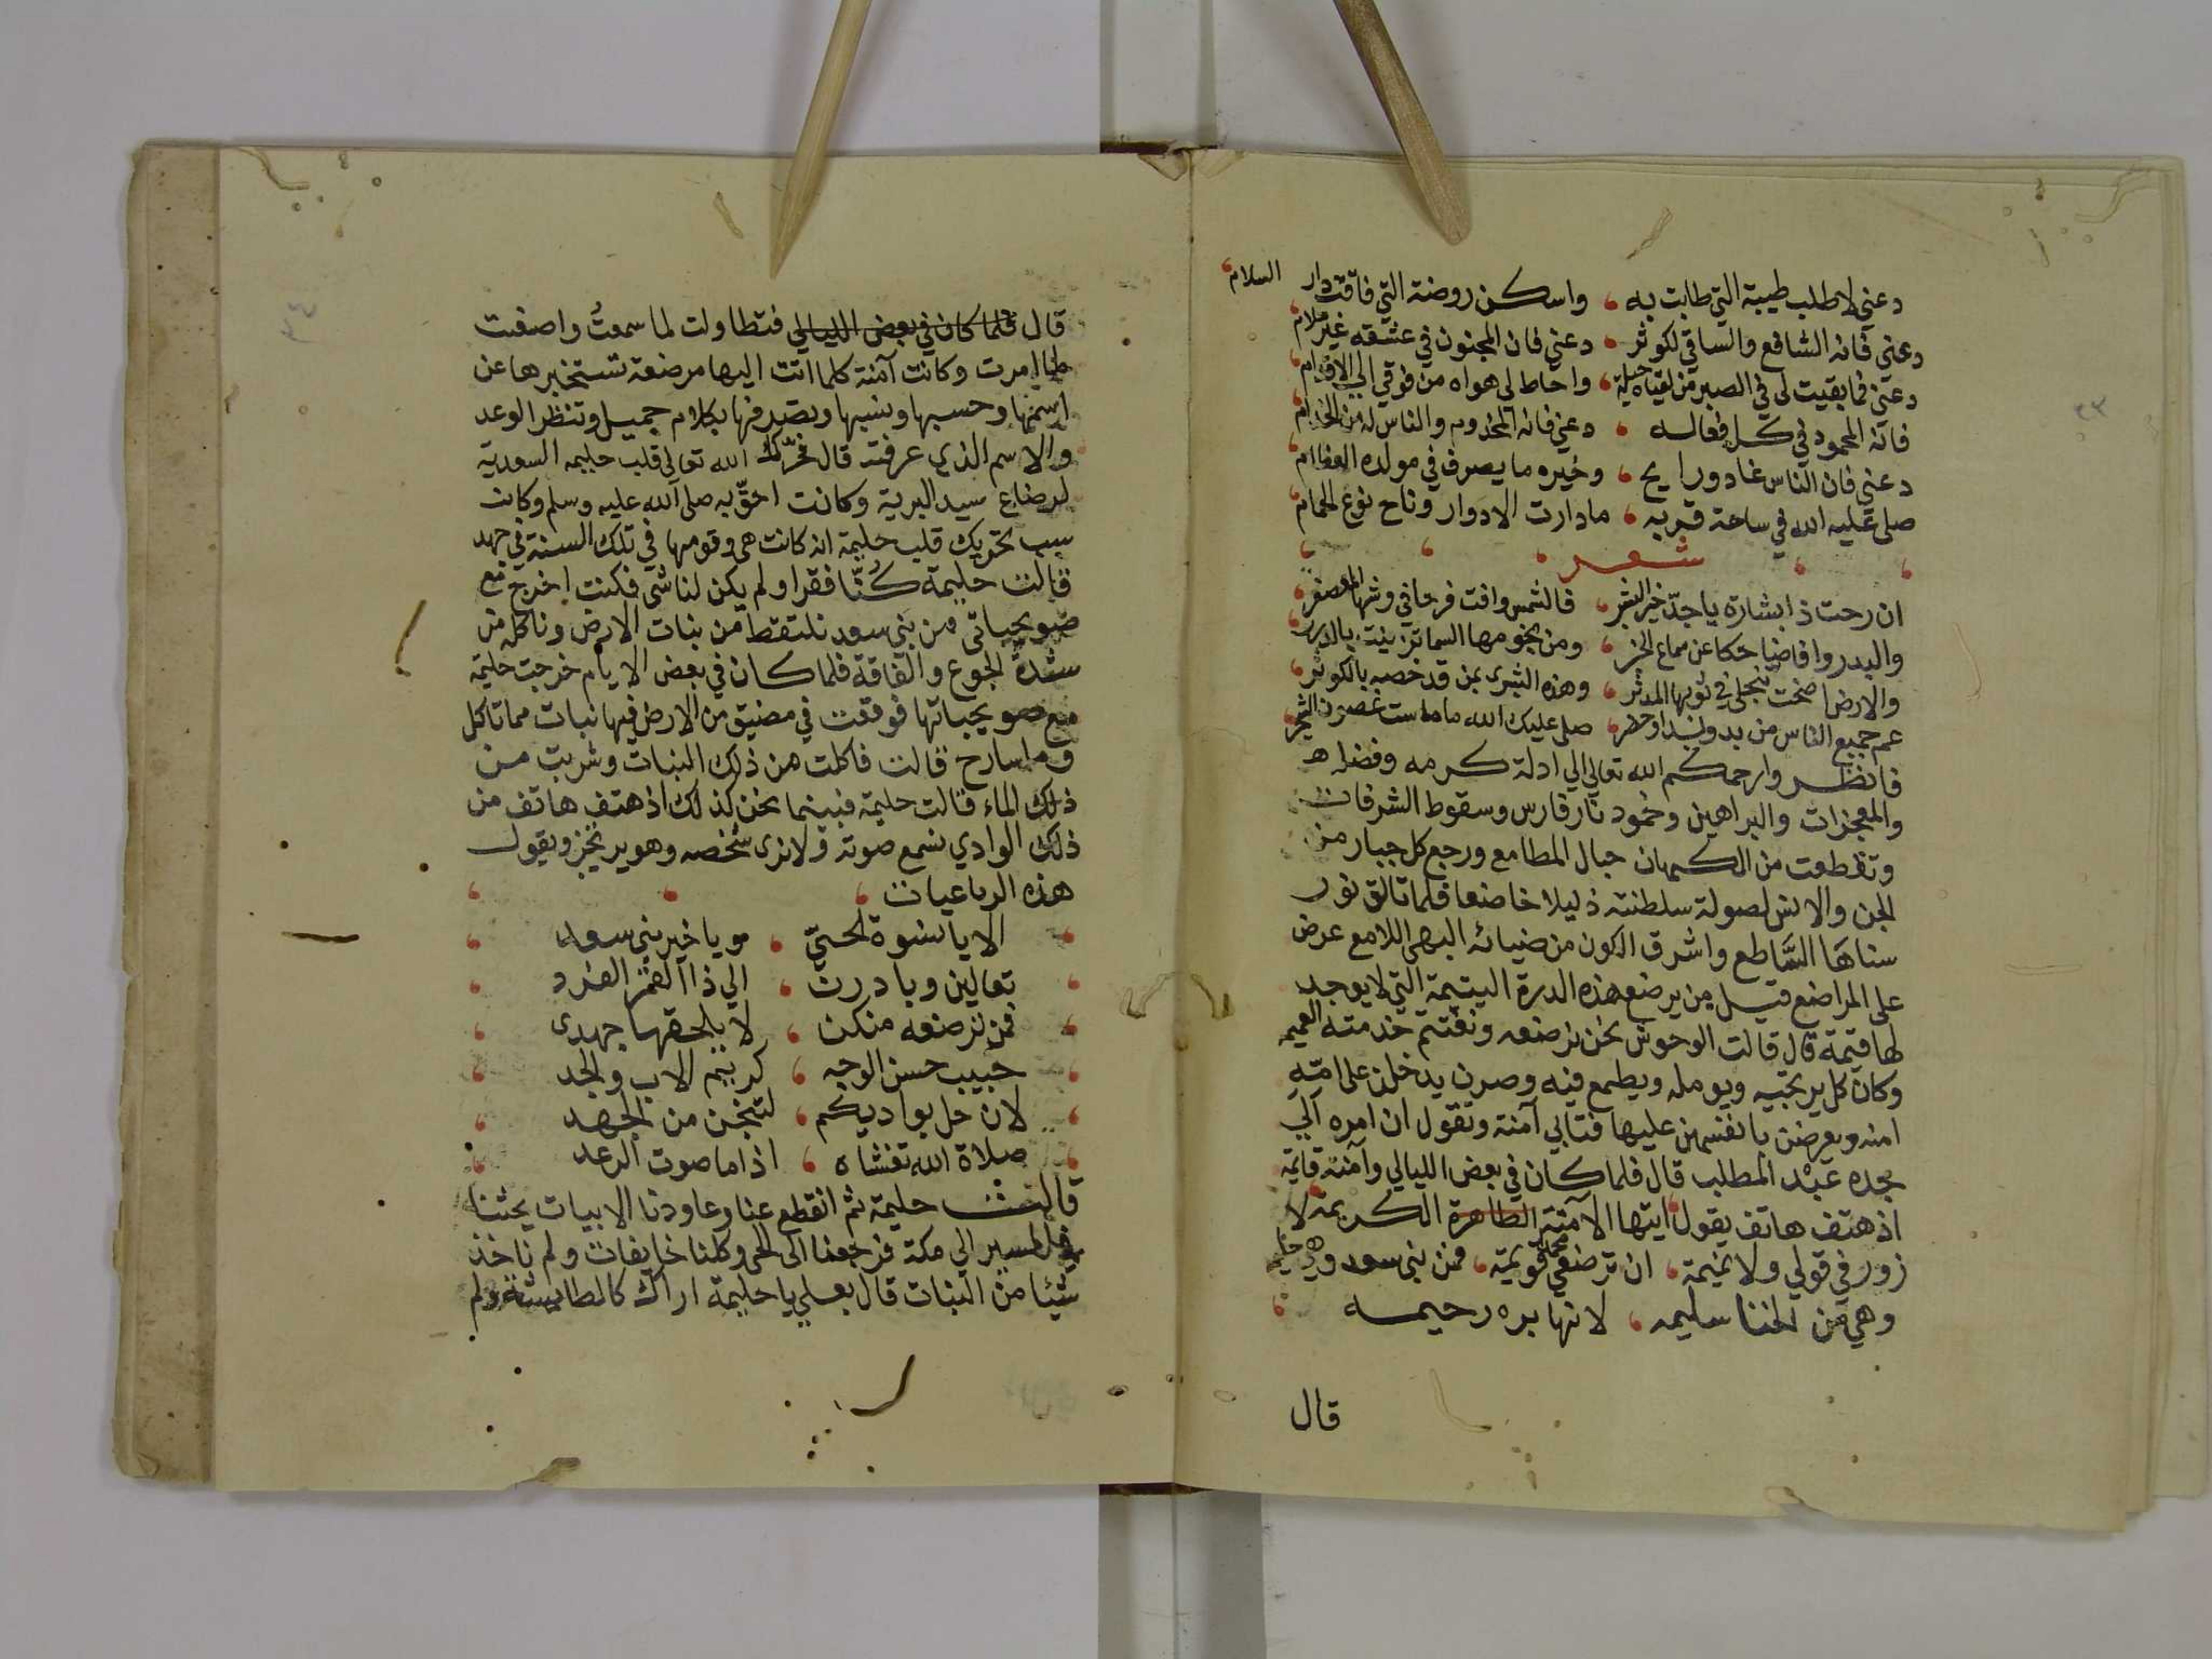 دعني لاطلب طيبة التي طابت به ، واسكن روضة التي فاقت دار السلام
دعني فانه الشافع والساقي لكوثر ، دعني فان المجنون في عشقه غير ملام
دعني فما بقيت لي في الصبر من لقياه حيلة ، واحاط لي هواه من فوقي الي الاقدام
فانه المحمود في كل فعاله ، دعني فانه المخدوم والناس له من الخدام
دعني فان الناس غاد ورايح ، وخيره ما يصرف في مولده العظاام
صلى عليه الله في ساعة قربه ، مادارت الادوار وناح نوع الحمام
شعر
ان رحت ذا بشارة يا جدّ خير البشر ، فالشمس وافت فرحا في وشيها المعصفر
والبدر وافا ضاحكا عن سماع الخبر ، ومن نجومها السما تزينت بالدرر
والارض اضحت تنجلي في ثوبها المدثر ، وهذه البشرى بمن قد خصه بالكوثر
عم جميع الناس من بدو بدا وحضر ، صلى عليك الله ما ماست غصون الشجر
فانظر وارحمكم الله تعالي الي ادلة كرمه وفضله
والمعجزات والبراهين وخمود نار فارس وسقوط الشرفات
وتقطعت من الكهان حبال المطامع ورجع كل جبار من
الجن والانس لصولة سلطنته ذليلا خاضعا فلما تالق نور
سناها السَّاطع واشرق الكون من ضيائه البهي اللامع عرض
على المراضع قيل من يرضع هذه الدرة اليتيمة التي لا يوجد
لها قيمة قال قالت الوحوش نحن نرضعه ونغتنم خدمته العميمه
وكان كل يرتجيه ويومله ويطمع فيه وصرن يدخلن على امّه
امنه ويعرضن بانفسهن عليها فتابي آمنة وتقول ان امره الي
جده عبد المطلب قال فلما كان في بعض الليالي وآمنة قائمة
اذ هتف هاتف يقول ايتها الآمنة الطاهرة الكريمة لا
زور في قولي ولا نميمة ، ان ترضعي محمدا قويمة ، فمن بني سعد وهي حليمه
وهي من الخنا سليمه ، لانها بره رحيمه
قال
٢٣
٢٤
قال فلما كان في بعض الليالي فتطاولت لما سمعتُ واصغت
لما امرت وكانت آمنة كلما اتت اليها مرضعة تستخبرها عن
اسمها وحسبها ونسبها وتصرفها بكلام جميل وتنظر الوعد
والاسم الذي عرفته قال فحرّك الله تعالى قلب حليمه السعدية
لرضاع سيد البرية وكانت احقّ به صلى الله عليه وسلم وكانت
سبب تحريك قلب حليمة انه كانت هي وقومها في تلك السنة في جهد
قالت حليمة كُنّا فقرا ولم يكن لنا شي فكنت اخرج مع
صويحباتي من بني سعد نلتقط من نبات الارض وناكله من
شدة الجوع والفاقة فلما كان في بعض الايام خرجت حليمة
مع صويحباتها فوقفت في مضيق من الارض فيها نبات مما تاكل
وما سارح قالت فاكلت من ذلك النبات وشربت من
ذلك الماء قالت حليمة فبينما نحن كذلك اذ هتف هاتف من
ذلك الوادي نسمع صوته ولا نرى شخصه وهو يرتجز ويقول
هذه الرباعيات
الا يا نسوة الحيّ ، ويا خير بني سعد
تعالين وبادرن ، الي ذا القمر الفرد
فمن ترضعه منكن ، لا يلحقها جهدى
حبيب حسن الوجه ، كريم الاب والجد
لان حل بواديكم ، لتنجن من الجهد
صلاة الله تغشاه ، اذا ما صوت الرعد
قالت حليمة ثم انقطع عنا وعاودنا الابيات يحثنا
على المسير الي مكة فرجعنا الى الحى وكلنا خايفات ولم ناخذ
شيئا من النبات قال بعلي يا حليمة اراك كالطايشة ولم